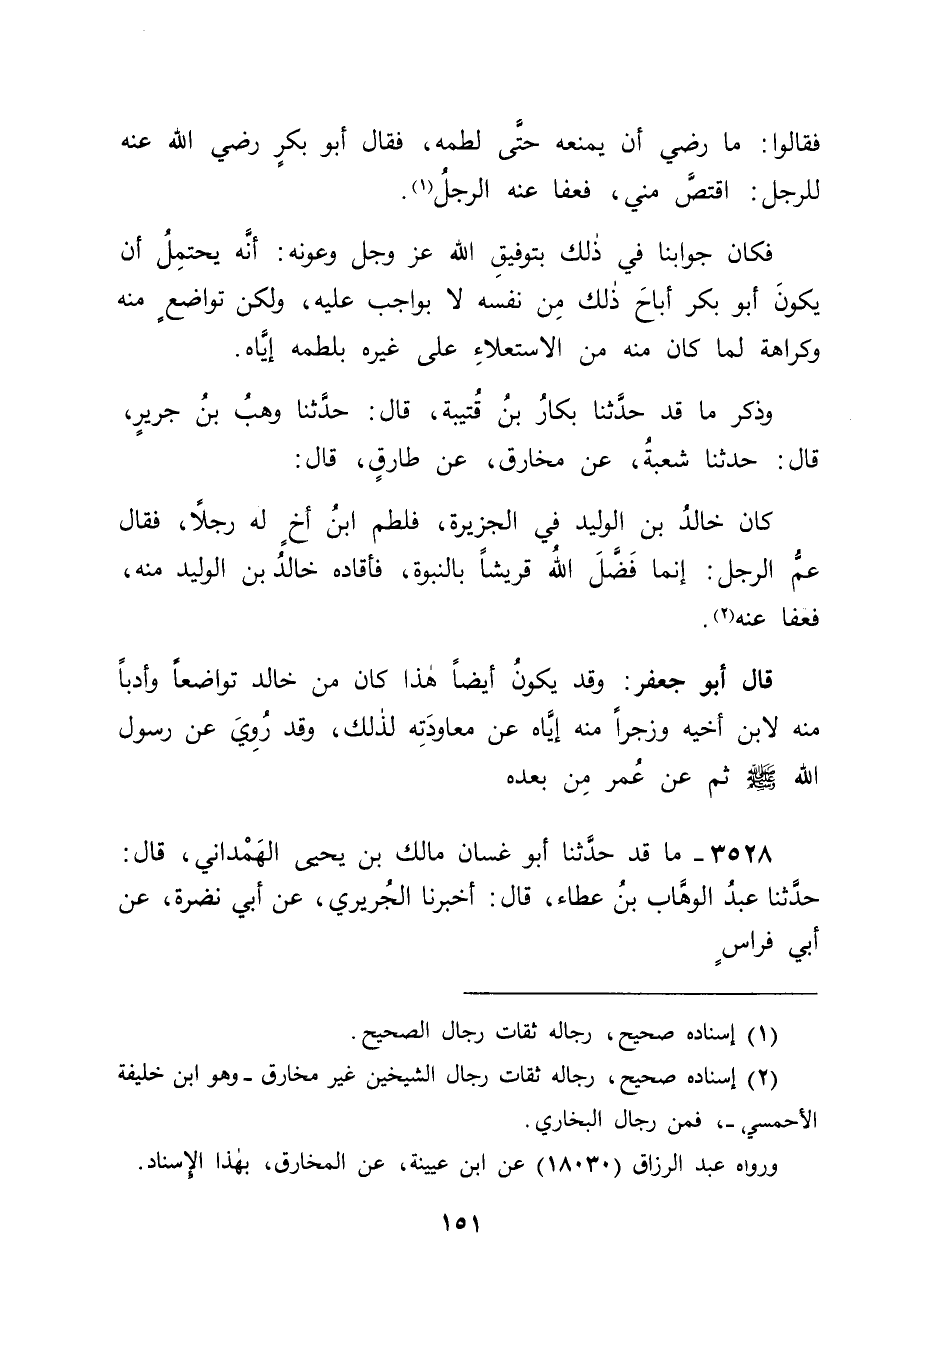 فقالوا: ما رضي أن يمنعه حتَّى لطمه، فقال أبو بكرٍ رضي الله عنه
للرجل: اقتصَّ مني، فعفا عنه الرجلُ(١).
فكان جوابنا في ذٰلك بتوفيقِ الله عز وجل وعونه: أنَّه يحتمِلُ أن
يكونَ أبو بكر أباحَ ذٰلك مِن نفسه لا بواجب عليه، ولكن تواضعٍ منه
وكراهة لما كان منه من الاستعلاءِ على غيره بلطمه إيَّاه.
وذكر ما قد حدَّثنا بكارُ بنُ قُتيبة، قال: حدَّثنا وهبُ بنُ جريرٍ،
قال: حدثنا شعبةُ، عن مخارق، عن طارقٍ، قال:
كان خالدُ بن الوليد في الجزيرة، فلطم ابنُ أخٍ له رجلًا، فقال
عمُّ الرجل: إنما فَضَّلَ اللهُ قريشاً بالنبوة، فأقاده خالدُ بن الوليد منه،
فعفا عنه(٢).
قال أبو جعفر: وقد يكونُ أيضاً هٰذا كان من خالد تواضعاً وأدباً
منه لابن أخيه وزجراً منه إيَّاه عن معاودَتِه لذٰلك، وقد رُوِيَ عن رسول
الله ﷺ ثم عن عُمر مِن بعده
٣٥٢٨ـ ما قد حدَّثنا أبو غسان مالك بن يحيى الهَمْداني، قال:
حدَّثنا عبدُ الوهَّاب بنُ عطاء، قال: أخبرنا الجُريري، عن أبي نضرة، عن
أبي فراسٍ
(١) إسناده صحيح، رجاله ثقات رجال الصحيح.
(٢) إسناده صحيح، رجاله ثقات رجال الشيخين غير مخارق ـ وهو ابن خليفة
الأحمسي، ـ، فمن رجال البخاري.
ورواه عبد الرزاق (١٨٠٣٠) عن ابن عيينة، عن المخارق، بهٰذا الإسناد.
١٥١